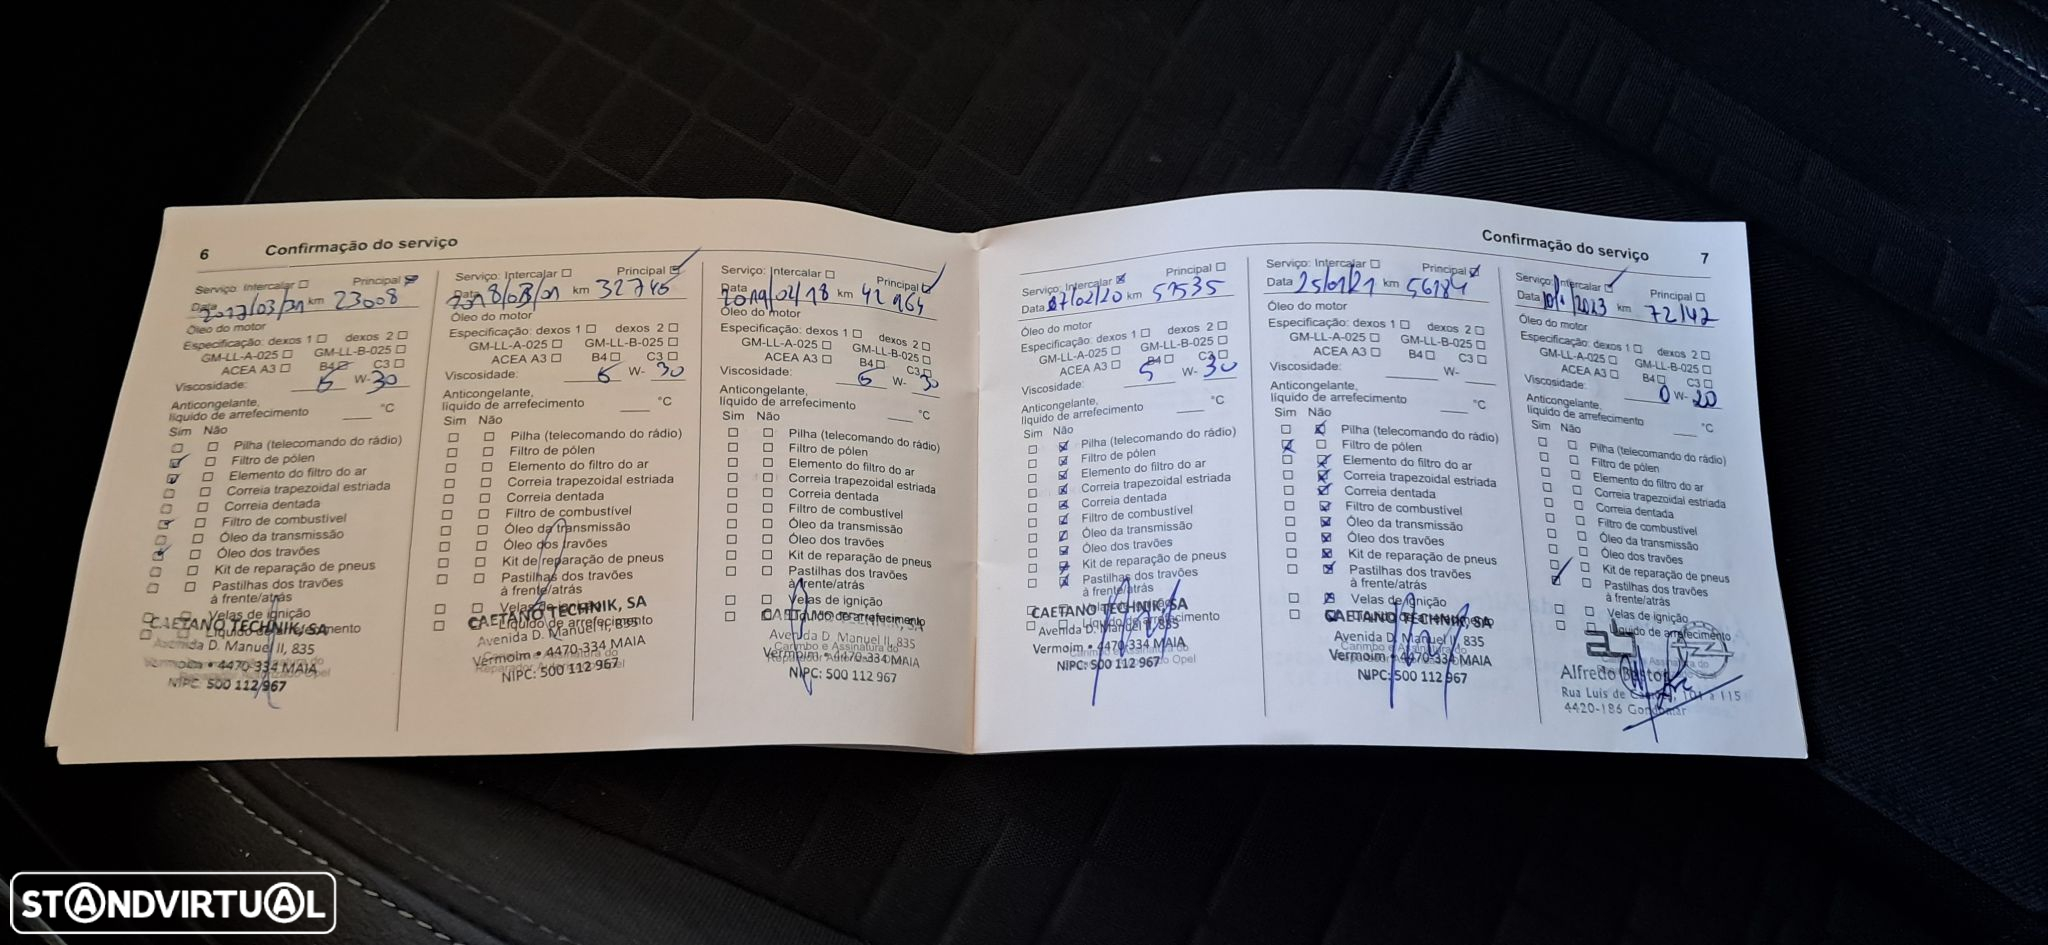 6 Confirmação do serviço
Serviço: Intercalar Principal
Data 2017/03/31 km 23008
Óleo do motor
Especificação: dexos 1 dexos 2
GM-LL-A-025 GM-LL-B-025
ACEA A3 B4 C3
Viscosidade: 5 W- 30
Anticongelante,
líquido de arrefecimento °C
Sim Não
Pilha (telecomando do rádio)
Filtro de pólen
Elemento do filtro do ar
Correia trapezoidal estriada
Correia dentada
Filtro de combustível
Óleo da transmissão
Óleo dos travões
Kit de reparação de pneus
Pastilhas dos travões
à frente/atrás
Velas de ignição
Líquido de arrefecimento
CAETANO TECHNIK, SA
Avenida D. Manuel II, 835
Vermoim • 4470-334 MAIA
NIPC: 500 112 967
Serviço: Intercalar Principal
Data 2018/03/01 km 32745
Óleo do motor
Especificação: dexos 1 dexos 2
GM-LL-A-025 GM-LL-B-025
ACEA A3 B4 C3
Viscosidade: 5 W- 30
Anticongelante,
líquido de arrefecimento °C
Sim Não
Pilha (telecomando do rádio)
Filtro de pólen
Elemento do filtro do ar
Correia trapezoidal estriada
Correia dentada
Filtro de combustível
Óleo da transmissão
Óleo dos travões
Kit de reparação de pneus
Pastilhas dos travões
à frente/atrás
Velas de ignição
Líquido de arrefecimento
CAETANO TECHNIK, SA
Avenida D. Manuel II, 835
Vermoim • 4470-334 MAIA
NIPC: 500 112 967
Serviço: Intercalar Principal
Data 2019/02/18 km 42964
Óleo do motor
Especificação: dexos 1 dexos 2
GM-LL-A-025 GM-LL-B-025
ACEA A3 B4 C3
Viscosidade: 5 W- 30
Anticongelante,
líquido de arrefecimento °C
Sim Não
Pilha (telecomando do rádio)
Filtro de pólen
Elemento do filtro do ar
Correia trapezoidal estriada
Correia dentada
Filtro de combustível
Óleo da transmissão
Óleo dos travões
Kit de reparação de pneus
Pastilhas dos travões
à frente/atrás
Velas de ignição
Líquido de arrefecimento
Avenida D. Manuel II, 835
Vermoim • 4470-334 MAIA
NIPC: 500 112 967
Confirmação do serviço 7
Serviço: Intercalar Principal
Data 07/02/20 km 51535
Óleo do motor
Especificação: dexos 1 dexos 2
GM-LL-A-025 GM-LL-B-025
ACEA A3 B4 C3
Viscosidade: 5 W- 30
Anticongelante,
líquido de arrefecimento °C
Sim Não
Pilha (telecomando do rádio)
Filtro de pólen
Elemento do filtro do ar
Correia trapezoidal estriada
Correia dentada
Filtro de combustível
Óleo da transmissão
Óleo dos travões
Kit de reparação de pneus
Pastilhas dos travões
à frente/atrás
Velas de ignição
Líquido de arrefecimento
CAETANO TECHNIK, SA
Avenida D. Manuel II, 835
Vermoim • 4470-334 MAIA
NIPC: 500 112 967
Serviço: Intercalar Principal
Data 25/01/21 km 56184
Óleo do motor
Especificação: dexos 1 dexos 2
GM-LL-A-025 GM-LL-B-025
ACEA A3 B4 C3
Viscosidade: W-
Anticongelante,
líquido de arrefecimento °C
Sim Não
Pilha (telecomando do rádio)
Filtro de pólen
Elemento do filtro do ar
Correia trapezoidal estriada
Correia dentada
Filtro de combustível
Óleo da transmissão
Óleo dos travões
Kit de reparação de pneus
Pastilhas dos travões
à frente/atrás
Velas de ignição
CAETANO TECHNIK, SA
Avenida D. Manuel II, 835
Vermoim • 4470-334 MAIA
NIPC: 500 112 967
Serviço: Intercalar Principal
Data km 72142
Óleo do motor
Especificação: dexos 1 dexos 2
GM-LL-A-025 GM-LL-B-025
ACEA A3 B4 C3
Viscosidade: 0 W- 20
Anticongelante,
líquido de arrefecimento °C
Sim Não
Pilha (telecomando do rádio)
Filtro de pólen
Elemento do filtro do ar
Correia trapezoidal estriada
Correia dentada
Filtro de combustível
Óleo da transmissão
Óleo dos travões
Kit de reparação de pneus
Pastilhas dos travões
à frente/atrás
Velas de ignição
Líquido de arrefecimento
Alfredo
Rua Luis de 101 a 115
4420-186 Gondomar
STANDVIRTUAL